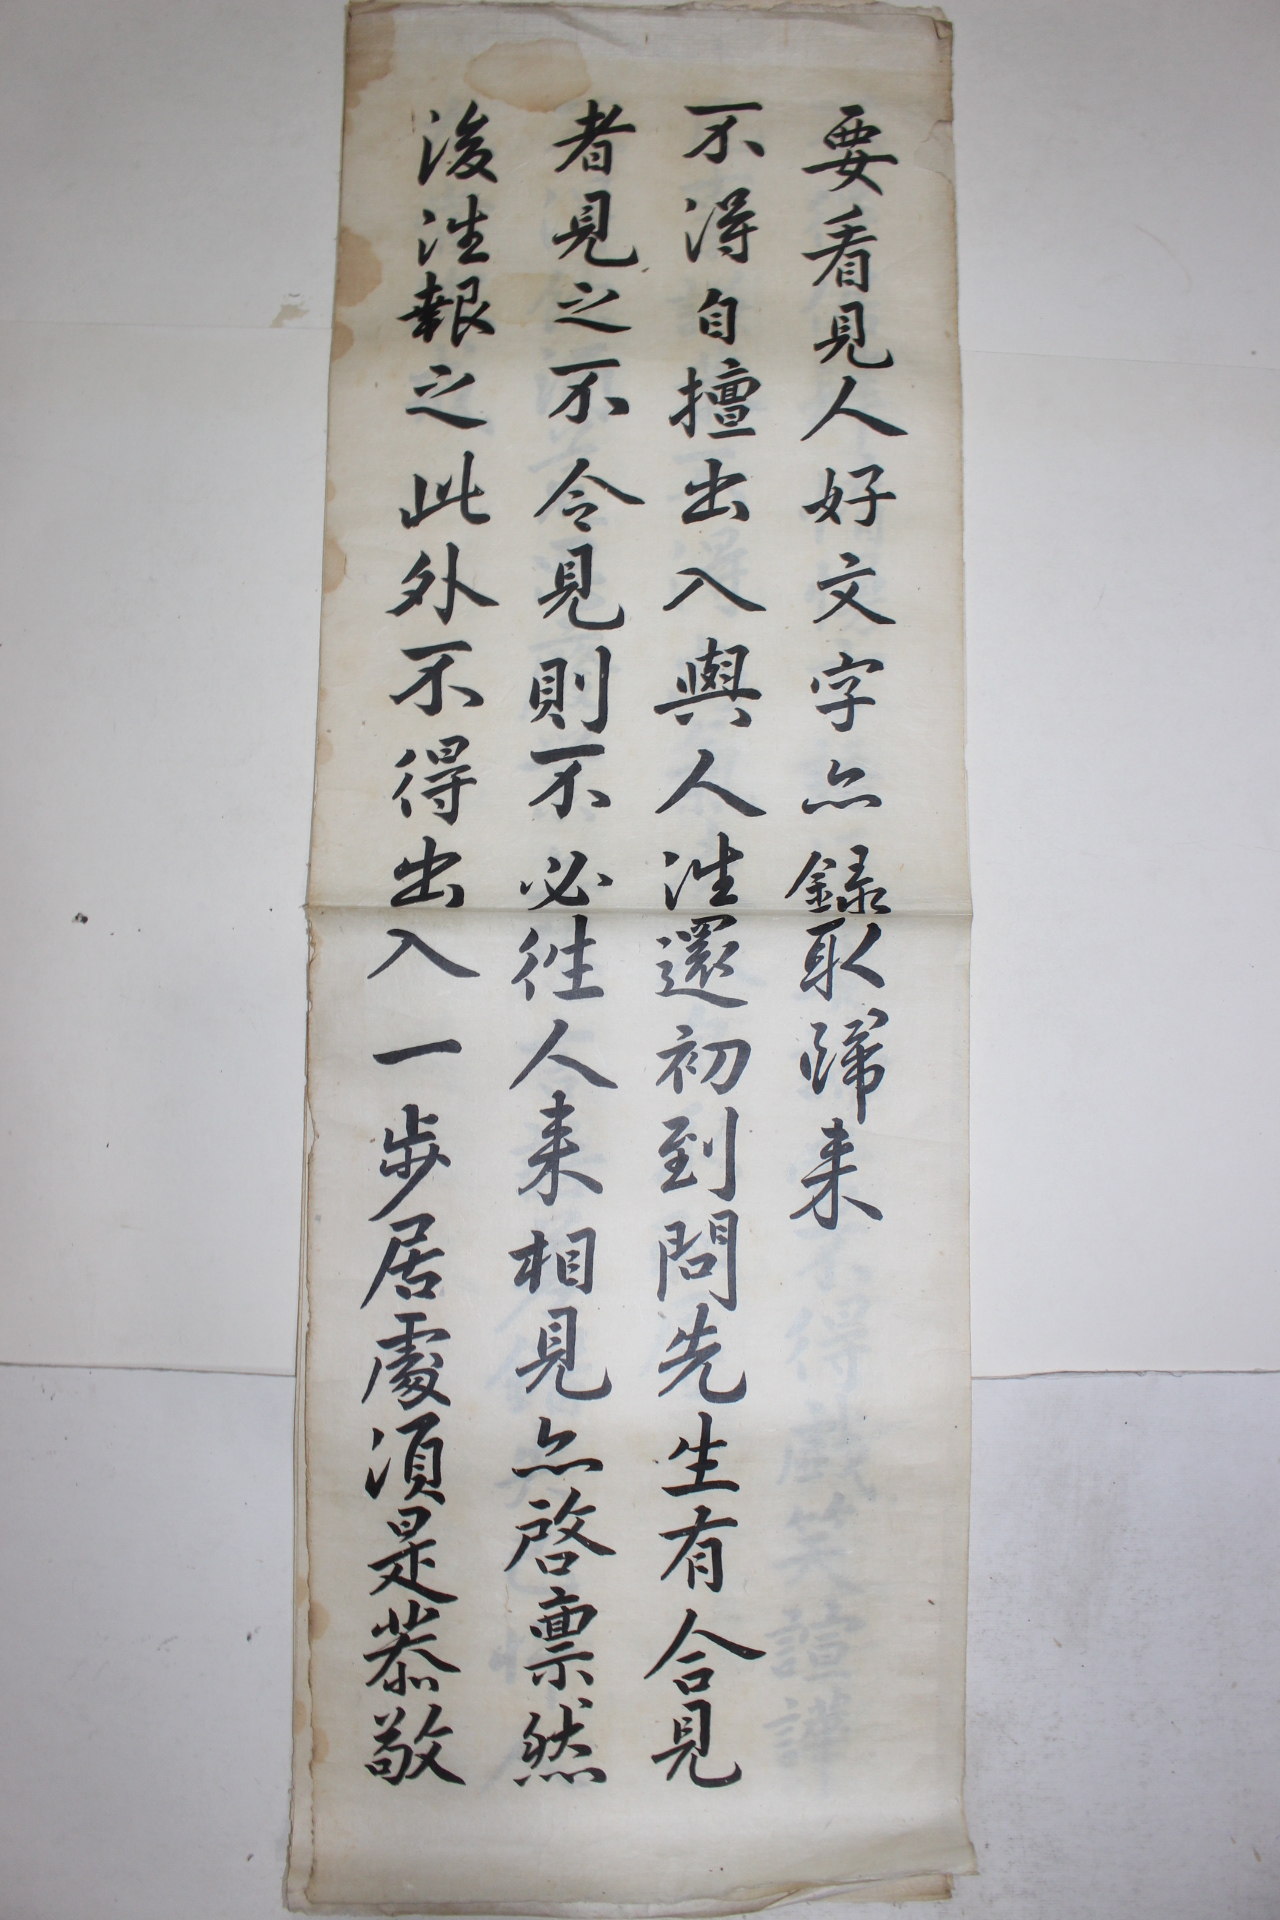 要看見人好文字亦錄取歸来
不得自擅出入與人往還初到問先生有合見
者見之不令見則不必往人来相見亦啓稟然
後往報之此外不得出入一步居處須是恭敬
不得
戲笑諠譁